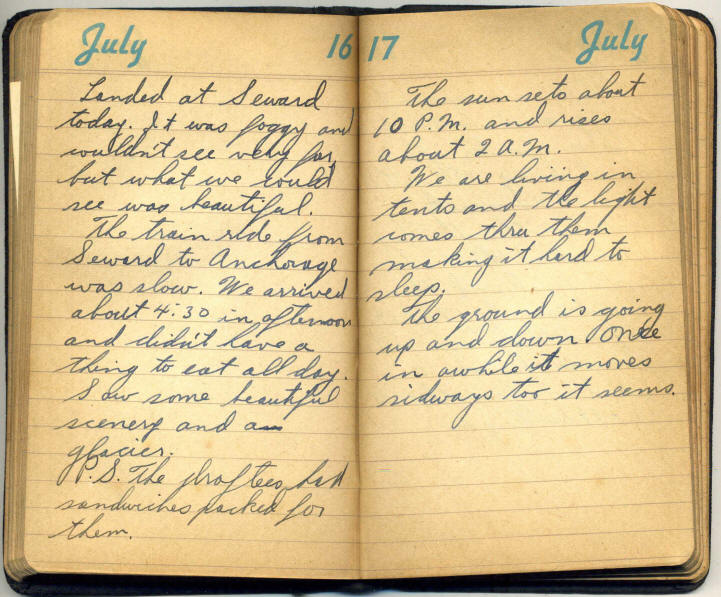 July 16
Landed at Seward
today. It was foggy and
couldn't see very far,
but what we could
see was beautiful.
The train ride from
Seward to Anchorage
was slow. We arrived
about 4:30 in afternoon
and didn't have a
thing to eat all day.
Saw some beautiful
scenery and a
glacier.
P.S. The draftees had
sandwiches packed for
them.
17 July
The sun sets about
10 P.M. and rises
about 2 A.M.
We are living in
tents and the light
comes thru them
making it hard to
sleep.
The ground is going
up and down once
in awhile it moves
sidways too it seems.